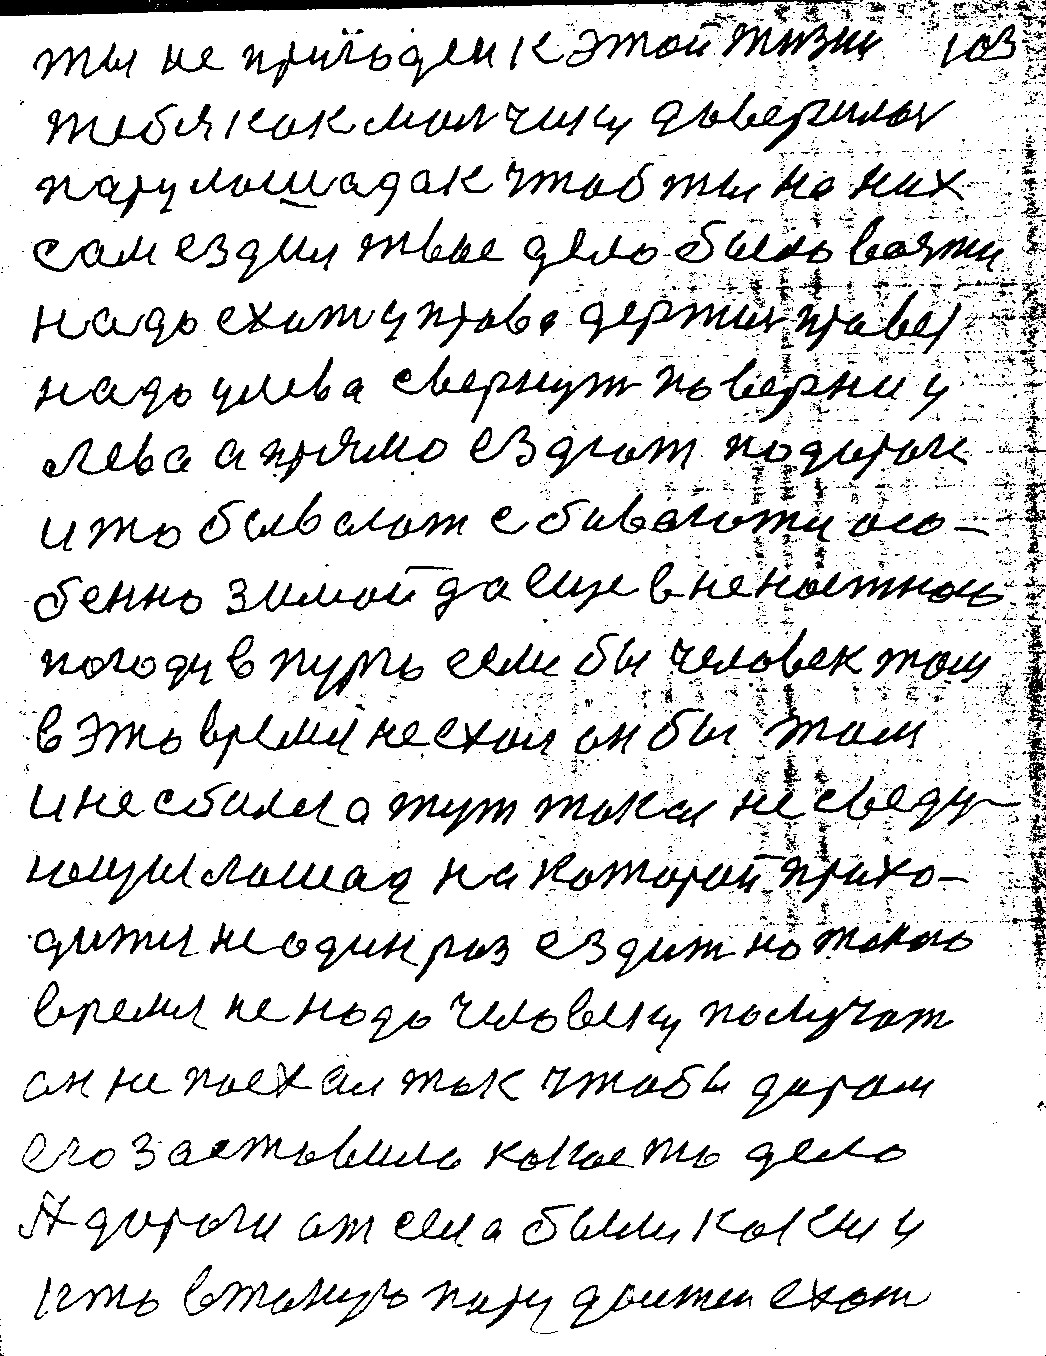 ты не прийдеш к этой жизни 103
тебя как малчику дьверилы
пару лошадак чтоб ты на них
сам ездил твое дело было вожжи
надо ехат управо держи праве
надо улева свернут поверни у
лева а прямо ездют по дороги
и то бывалот сбиваютси осо-
бенно зимой да еще в неностною
погоду в пургь если бы человек там
в эть время не ехал он бы там
и не сбилса тут токи не сведу
ющи лошад на которой прихо-
дитьи не один раз ездит на такою
время не надо человеку получат
он не поехал так чтобы даром
его заставила какое то дело
А дороги от села были каки и
кто в такую пору должен ехат